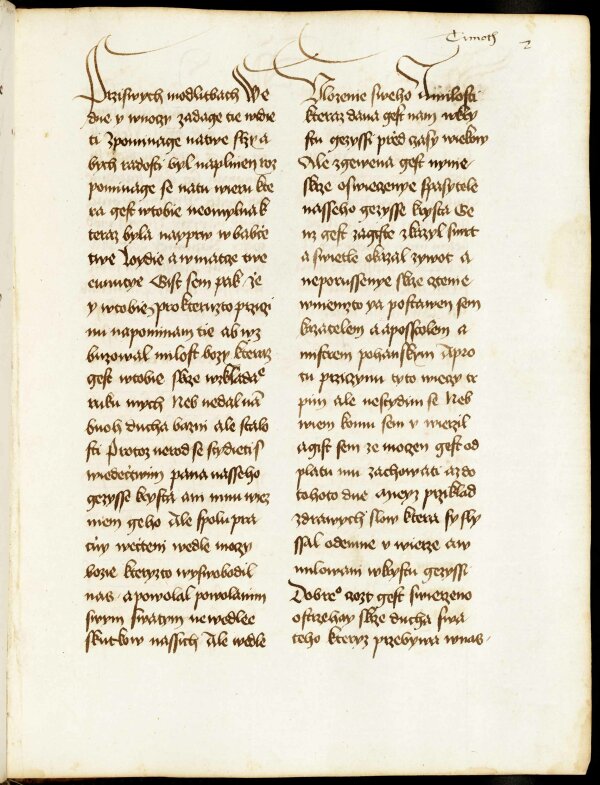 Timoth 2
Prziswych modlitbach We
dne y wnoczy zadage tie wdie
ti zpominage natwe slzy a
bych radosti byl naplnien roz
pominage se natu wieru kte
ra gest wtobie neomylna k
teraz byla nayprw wbabie
twe loydie a wmatce twe
eunicye Gist sem pak ze
y wtobie prokteruzto przi
nu napominam tie ab wz
buzowal milost bozy kteraz
gest wtobie skrze wzklada
ruku mych Neb nedal nam
buoh ducha bazni ale stalo
sti Protoz nerod se stydieti s
wiedectwim pana nasseho
gezysse krysta ani mnu wez
niem geho Ale spolu pra
czuy wecteni wedle moczy
bozie kteryzto wyswobodil
nas a powolal powolanim
swym swatym newedlee
skutkow nassich Ale wedle
Ulozenie sweho A milosti
kteraz dana gest nam wkry
stu gezyssi pred czasy wiekow
Ale zgewena gest nynie
skrze oswieczenye spasytele
nasseho gezysse krysta Ge
nz gest zagiste zkazyl smrt
a swietle okazal zywot a
neporussenye skrze cztenie
wniemzto ya postawen sem
kazatelem a apposstolem a
mistrem pohanskym Apro
tu przyczynu tyto wieczy tr
pim ale nestydim se Neb
wiem komu sem vwierzil
a gist sem ze mozen gest od
platu mu zachowati azdo
tohoto dne Amyez przyklad
zdrawych slow ktera sy sly
ssal odemne v wierze aw
milowani wkrystu gezyssi
Dobreo czozt gest swierzeno
ostrzehay skrze ducha swa
teho kteryz przebywa wnas